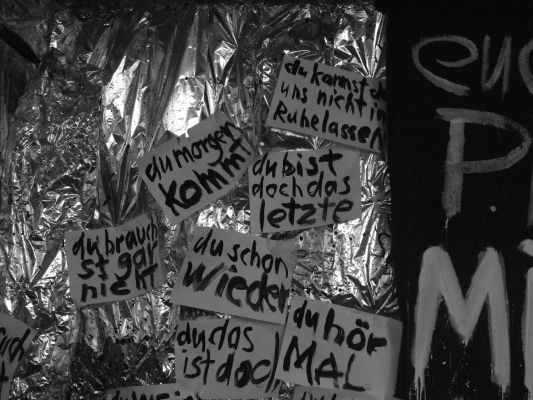 du kannst
uns nicht in
Ruhe lassen
du morgen
kommt
du bist
doch das
letzte
du brauch
st gar
nicht
du schon
wieder
du das
ist doch
du hör
MAL
euc
P.
Mi